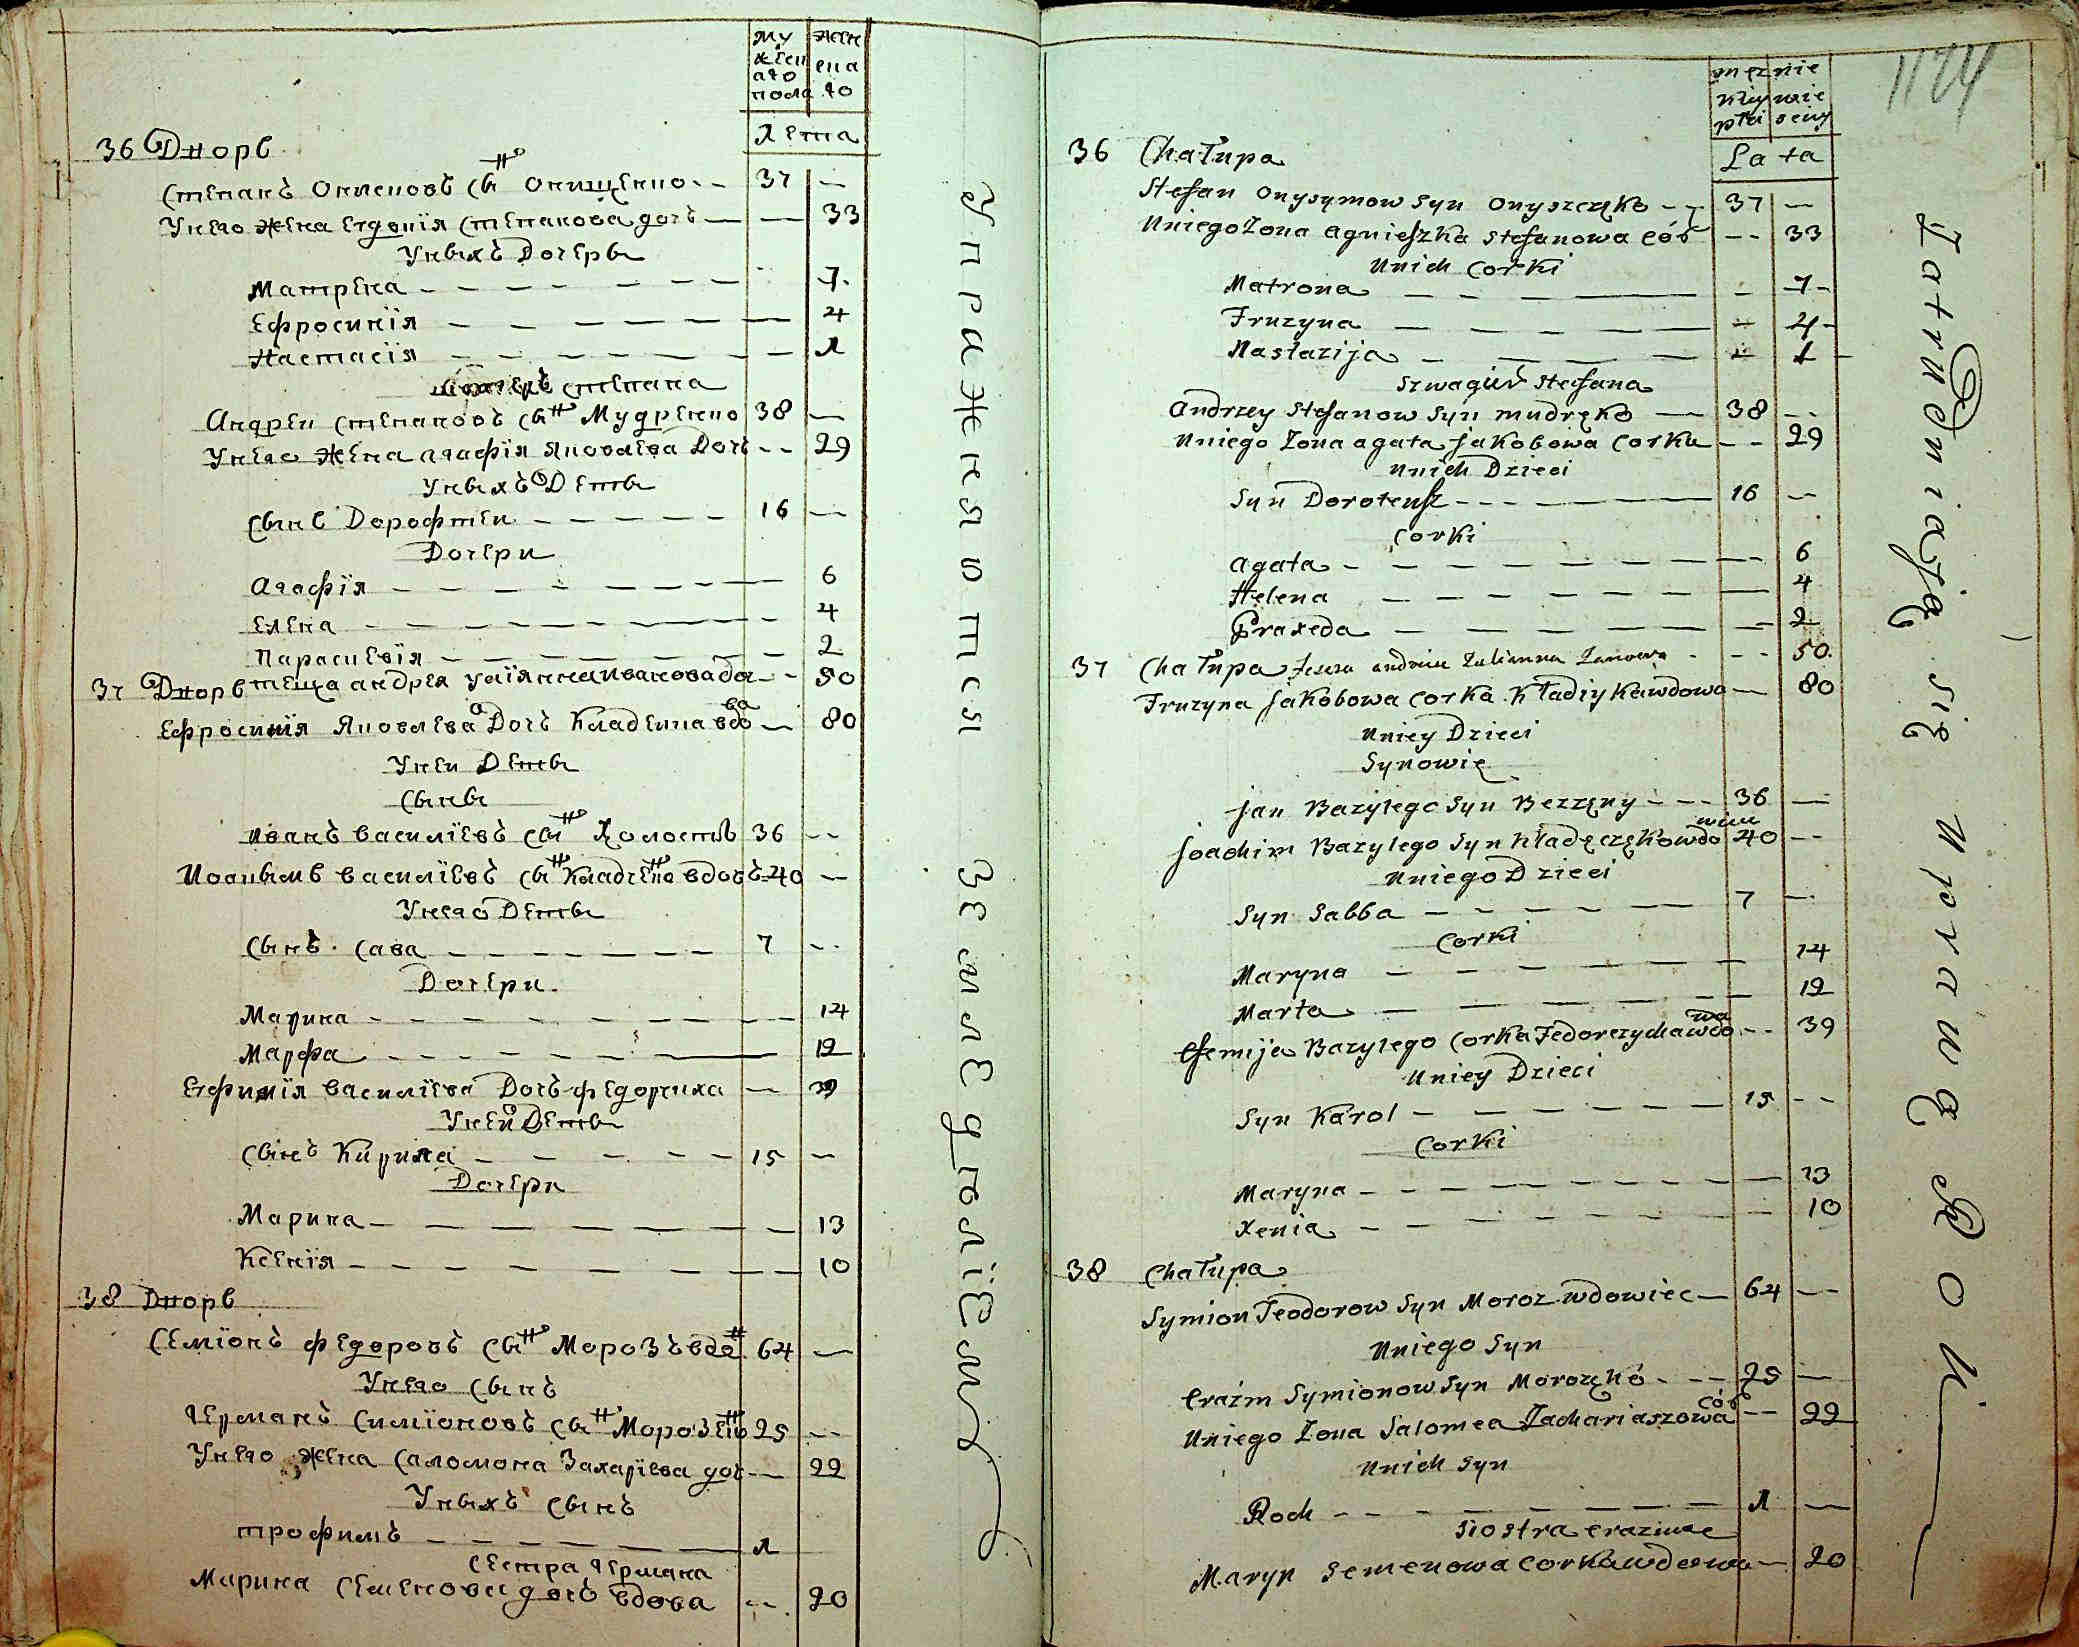 Му жен
жеск ска
аго аго
пола
Лета
36 Дворъ
Степанъ Онисповъ сынъ Онищенко 37 —
У него жена Евдокія Степанова дочь — 33
У ныхъ Дочеры
Матрена 7
Ефросинія 4
Настасія 1
Степана
Андреи Степановъ сынъ Мудренко 38 —
У него жена Агафія Яковлева Дочь — 29
У ныхъ Деты
Сынъ Дорофтеи 16 —
Дочери
Агафія 6
Елена 4
Парасковія 2
37 Дворъ теща Андрея Уліянна Иванова до 50
Ефросинія Яковлева Дочь Кладкина вдова — 80
У неи Деты
Сыны
Иванъ Василіевъ сынъ Холостъ 36 —
Иоакымъ Василіевъ сынъ Кладченко вдовъ 40 —
У него Деты
Сынъ Сава 7 —
Дочери
Марина 14
Марфа 12
Евфимія Василіева Дочь Федорчиха — 39
У ней Деты
Сынъ Кирила 15 —
Дочери
Марина 13
Ксенія 10
38 Дворъ
Семіонъ Федоровъ сынъ Морозъ вдо 64 —
У него Сынъ
Германъ Симіоновъ сынъ Морозенко 25 —
У него жена Саломона Захаріева доч — 22
У ныхъ сынъ
Трофимъ 1
Сестра Германа
Марина Семенова дочь вдова — 20
Упражняются Земледѣліемъ
1124
męz nie
kiey wie
płci sciey
Lata
36 Chałupa
Stefan Onysymow Syn Onyszczęko 37 —
Uniego Zona Agnieszka Stefanowa Cór — 33
Unich Corki
Matrona — 7
Fruzyna — 4
Nastazija — 1
Szwagier Stefana
Andrzey Stefanow Syn Mudręko 38 —
Uniego Zona Agata Jakobowa Corka — 29
Unich Dzieci
Syn Doroteusz 16 —
Corki
Agata 6
Helena 4
Praxeda 2
37 Chałupa Andrew Zulianna Janowa — 50
Fruzyna Jakobowa Corka Kładiykawdowa — 80
Uniey Dzieci
Synowię
Jan Bazylego Syn Bezzęny 36 —
Joachim Bazylego Syn Kładęczękowdowiec 40 —
Uniego Dzieci
Syn Sabba 7 —
Corki
Maryna 14
Marta 12
Efemija Bazylego Corka Fedorczychawdowa — 39
Uniey Dzieci
Syn Karol 15 —
Corki
Maryna 13
Xenia 10
38 Chałupa
Symion Teodorow Syn Moroz wdowiec 64 —
Uniego Syn
Erazm Symionow Syn Morozęko 25 —
Uniego Zona Salomea Zachariaszowa Cór — 22
Unich Syn
Roch 1 —
Siostra Erazma
Maryn Semenowa Corka wdowa — 20
Zatrudniają się Uprawą Roli